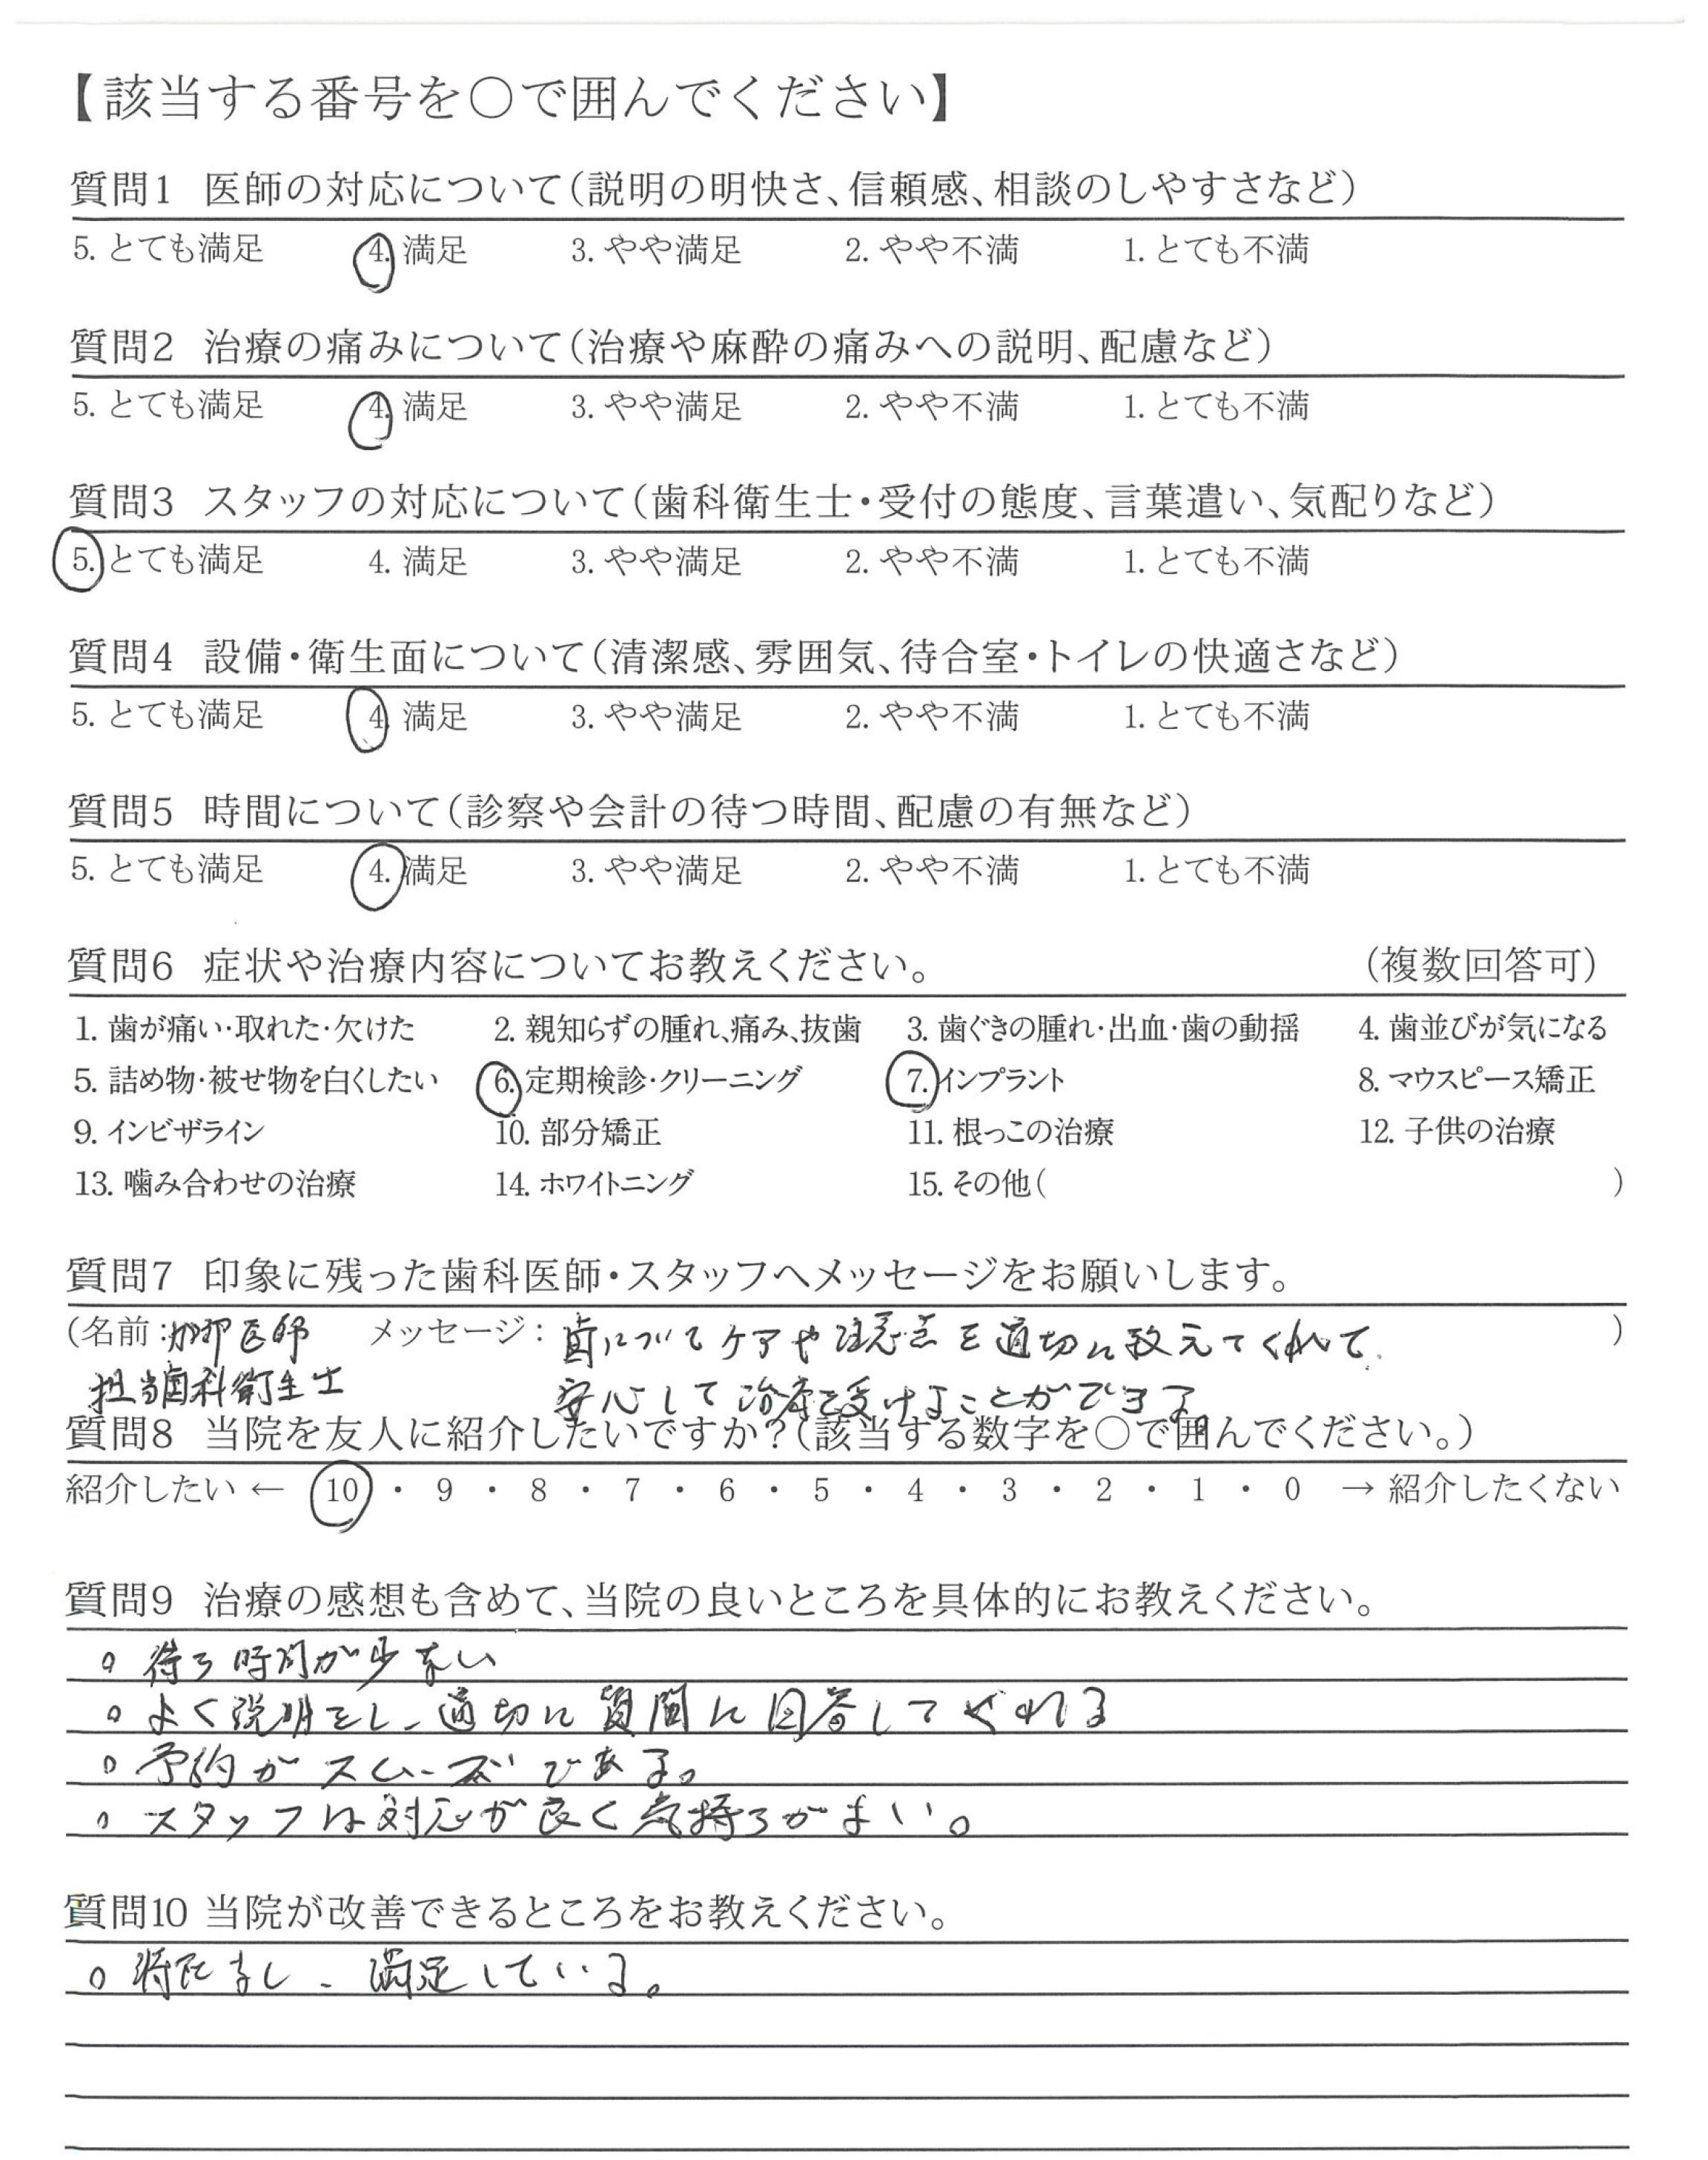 【該当する番号を○で囲んでください】
質問1 医師の対応について(説明の明快さ、信頼感、相談のしやすさなど)
5. とても満足 4. 満足 3. やや満足 2. やや不満 1. とても不満
質問2 治療の痛みについて(治療や麻酔の痛みへの説明、配慮など)
5. とても満足 4. 満足 3. やや満足 2. やや不満 1. とても不満
質問3 スタッフの対応について(歯科衛生士・受付の態度、言葉遣い、気配りなど)
5. とても満足 4. 満足 3. やや満足 2. やや不満 1. とても不満
質問4 設備・衛生面について(清潔感、雰囲気、待合室・トイレの快適さなど)
5. とても満足 4. 満足 3. やや満足 2. やや不満 1. とても不満
質問5 時間について(診察や会計の待つ時間、配慮の有無など)
5. とても満足 4. 満足 3. やや満足 2. やや不満 1. とても不満
質問6 症状や治療内容についてお教えください。 (複数回答可)
1. 歯が痛い・取れた・欠けた 2. 親知らずの腫れ、痛み、抜歯 3. 歯ぐきの腫れ・出血・歯の動揺 4. 歯並びが気になる
5. 詰め物・被せ物を白くしたい 6. 定期検診・クリーニング 7. インプラント 8. マウスピース矯正
9. インビザライン 10. 部分矯正 11. 根っこの治療 12. 子供の治療
13. 噛み合わせの治療 14. ホワイトニング 15. その他( )
質問7 印象に残った歯科医師・スタッフへメッセージをお願いします。
(名前: 医師 メッセージ: 歯についてケアや注意点を適切に教えてくれて、 )
担当歯科衛生士 安心して治療を受けることができる
質問8 当院を友人に紹介したいですか?(該当する数字を○で囲んでください。)
紹介したい ← 10 ・ 9 ・ 8 ・ 7 ・ 6 ・ 5 ・ 4 ・ 3 ・ 2 ・ 1 ・ 0 → 紹介したくない
質問9 治療の感想も含めて、当院の良いところを具体的にお教えください。
○ 待ち時間が少ない
○ よく説明をし、適切に質問に回答してくれる
○ 予約がスムーズである。
○ スタッフは対応が良く気持ちがよい。
質問10 当院が改善できるところをお教えください。
○ 特になし、満足している。